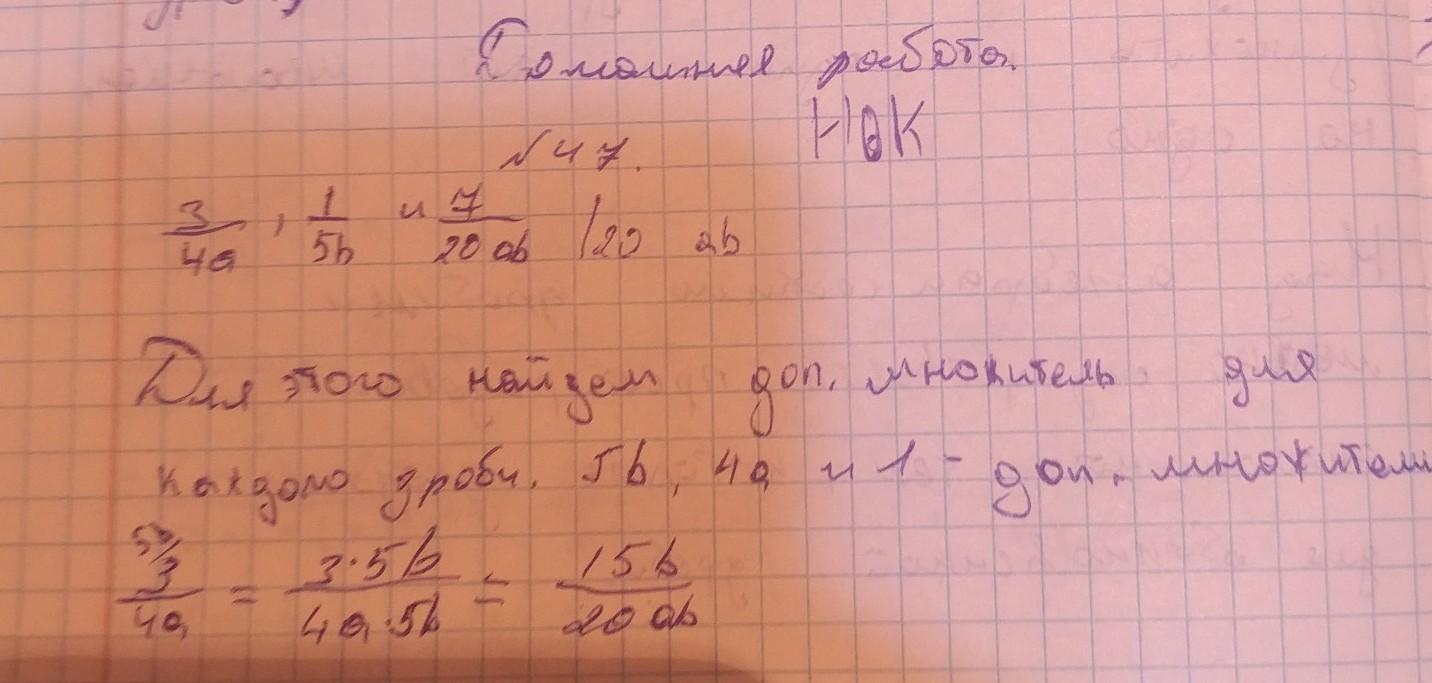 Домашняя работа.
НОК
№ 47.
3/4a, 1/5b и 7/20ab /20 ab
Для этого найдем доп. множитель для
каждого дроби. 5b, 4a и 1 - доп. множители
5b/ 3/4a = 3·5b/4a·5b = 15b/20ab